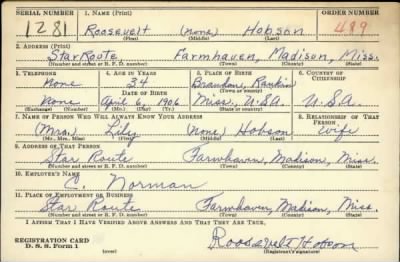 SERIAL NUMBER 1. NAME (Print) ORDER NUMBER
1281 Roosevelt (none) Hobson 489
(First) (Middle) (Last)
2. ADDRESS (Print)
Star Route Farmhaven, Madison, Miss.
(Number and street or R. F. D. number) (Town) (County) (State)
3. TELEPHONE 4. AGE IN YEARS 5. PLACE OF BIRTH 6. COUNTRY OF CITIZENSHIP
none 34 Brandon, Rankin
DATE OF BIRTH (Town or county)
none April 6, 1906 Miss., U.S.A. U.S.A.
(Exchange) (Number) (Mo.) (Day) (Yr.) (State or country)
7. NAME OF PERSON WHO WILL ALWAYS KNOW YOUR ADDRESS 8. RELATIONSHIP OF THAT PERSON
(Mrs.) Lily (none) Hobson wife
(Mr., Mrs., Miss) (First) (Middle) (Last)
9. ADDRESS OF THAT PERSON
Star Route Farmhaven, Madison, Miss.
(Number and street or R. F. D. number) (Town) (County) (State)
10. EMPLOYER'S NAME
C. Norman
11. PLACE OF EMPLOYMENT OR BUSINESS
Star Route Farmhaven, Madison, Miss.
(Number and street or R. F. D. number) (Town) (County) (State)
I AFFIRM THAT I HAVE VERIFIED ABOVE ANSWERS AND THAT THEY ARE TRUE.
REGISTRATION CARD Roosevelt Hobson
D. S. S. Form 1 (over) (Registrant's signature)